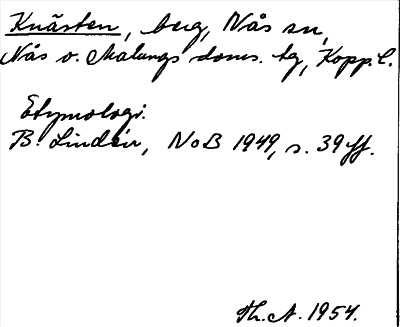 Knästen, berg, Nås sn,
Nås o. Malungs doms. tg, Kopp. l.
Etymologi.
B. Lindén, NoB 1949, s. 39 ff.
Th. A. 1954.